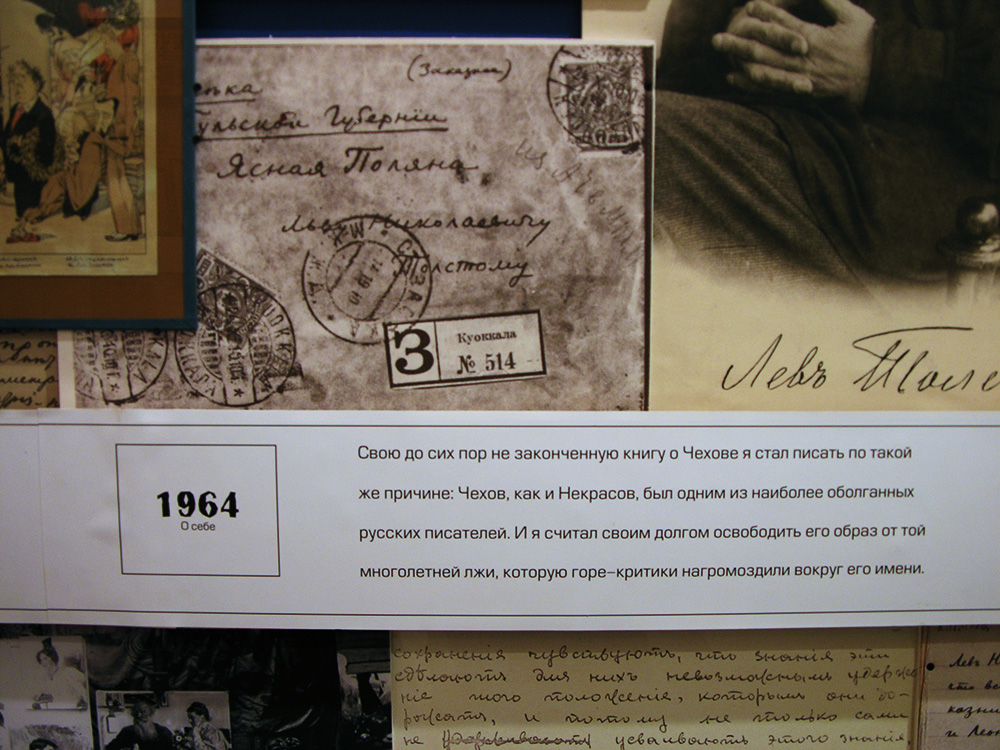 (Заказное)
Тульской Губерніи
Ясная Поляна
Льву Николаевичу
Толстому
З
Куоккала
№ 514
Левъ Толс
1964
О себе
Свою до сих пор не законченную книгу о Чехове я стал писать по такой
же причине: Чехов, как и Некрасов, был одним из наиболее оболганных
русских писателей. И я считал своим долгом освободить его образ от той
многолетней лжи, которую горе–критики нагромоздили вокруг его имени.
сохраненія чувствуютъ, что знанія эти
сдѣлаютъ для нихъ невозможнымъ удержа
ніе того положенія, которымъ они до-
рожатъ, и потому не только сами
не усваиваютъ этого знанія
Левъ Н
что во
казни
и Лео